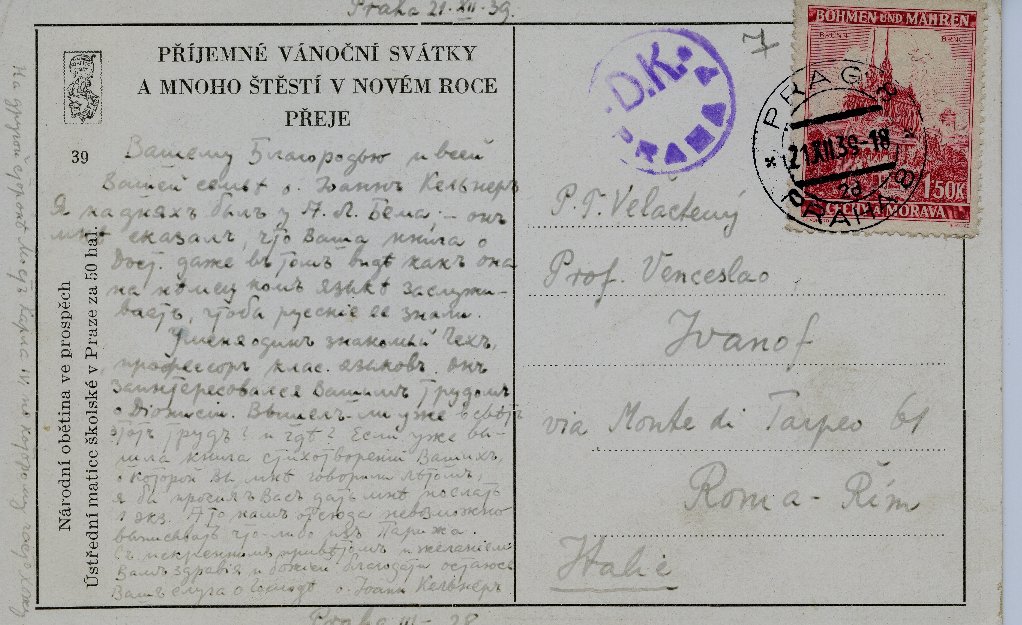 Praha 21·XII·39.
PŘÍJEMNÉ VÁNOČNÍ SVÁTKY
A MNOHO ŠTĚSTÍ V NOVÉM ROCE
PŘEJE
39
Вашему Благородью и всей
Вашей семьѣ о. Іоаннъ Кельнеръ
Я на дняхъ былъ у А. Л. Бема — онъ
мнѣ сказалъ, что Ваша книга о
Дост. даже въ томъ видѣ какъ она
на нѣмецкомъ языкѣ заслужи-
ваетъ, чтобы русскіе ее знали.
У меня одинъ знакомый Чехъ,
профессоръ клас. языковъ. онъ
заинтересовался Вашимъ трудомъ
о Діонисіи. Вышелъ-ли уже въ свѣтъ
этотъ трудъ? и гдѣ? Если уже вы-
шла книга стихотвореній Вашихъ,
о которой Вы мнѣ говорили лѣтомъ,
я бы просилъ Васъ дать мнѣ послать
1 экз. А то намъ отсюда невозможно
выписывать что-либо изъ Парижа.
Съ искреннимъ привѣтомъ и желаніемъ
Вамъ здравія и Божіей благодати остаюсь
Вашъ слуга о Господѣ о. Іоаннъ Кельнеръ
Praha III - 28
На другой сторонѣ мостъ Карла IV по которому часто хожу
Národní obětina ve prospěch
Ústřední matice školské v Praze za 50 hal.
D.K.
7
BÖHMEN UND MÄHREN
BRÜNN BRNO
1·50K
ČECHY A MORAVA
PRAG 8
21.XII.39-18
PRAHA 8
P.T. Velactený
Prof. Venceslao
Ivanof
via Monte di Tarpeo 61
Roma - Řím
Italie